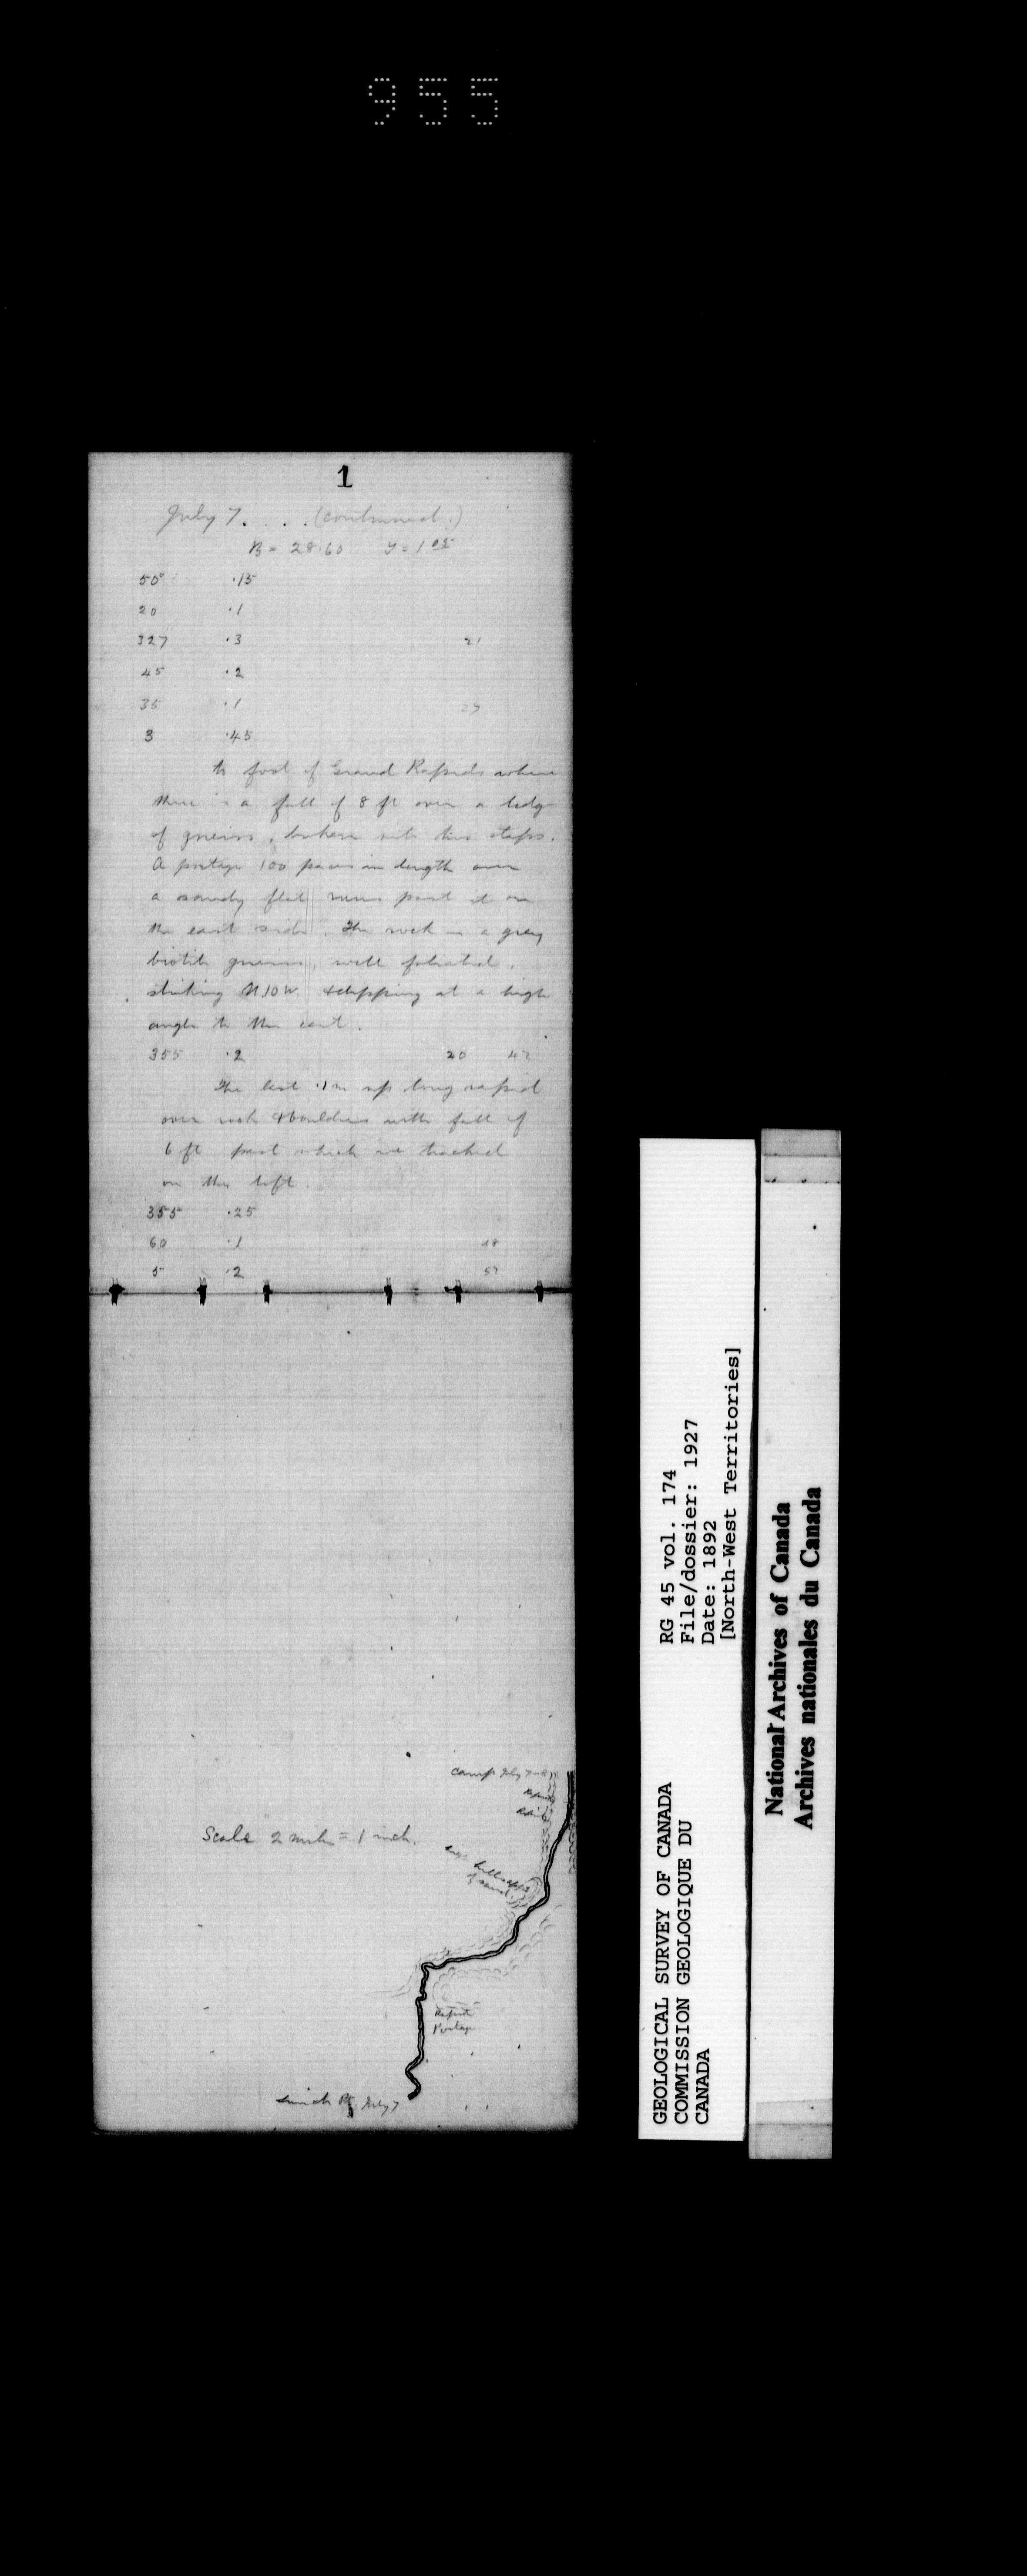 955
1
July 7. . . . (continued.)
B = 28.60 T = 1 05
50° .15
20 .1
327 .3 21
45 .2
35 .1 27
3 .45
to foot of Grand Rapids where
there is a fall of 8 ft over a ledge
of gneiss, broken into two steps.
A portage 100 paces in length over
a sandy flat runs past it on
the east side. The rock is a grey
biotite gneiss, well foliated,
striking N10W. & dipping at a high
angle to the east.
355 .2 20 42
The last .1 m up long rapid
over rock & boulders with fall of
6 ft past which we tracked
on the left.
355 .25
60 .1 48
5 .2 57
Camp July 7
Rapids
Rapids
hills
of sand.
Scale 2 miles = 1 inch.
Rapid
Portage
Lunch Pt. July 7
GEOLOGICAL SURVEY OF CANADA
COMMISSION GEOLOGIQUE DU
CANADA
RG 45 vol. 174
File/dossier: 1927
Date: 1892
[North-West Territories]
National Archives of Canada
Archives nationales du Canada